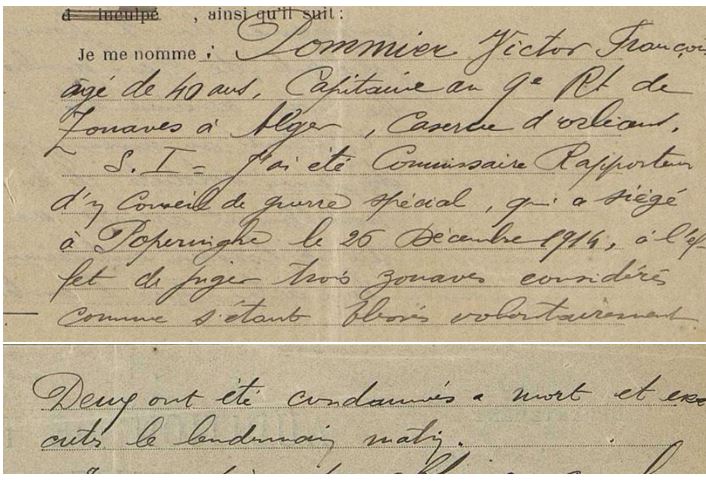 d inculpé , ainsi qu'il suit :
Je me nomme : Pommier Victor François
âgé de 40 ans, Capitaine au 9e Rt de
Zouaves à Alger, Caserne d'orléans.
S. I = J'ai été Commissaire Rapporteur
d'un Conseil de guerre spécial, qui a siégé
à Poperinghe le 26 Décembre 1914, à l'ef-
fet de juger trois zouaves considérés
comme s'étant blessés volontairement
Deux ont été condamnés a mort et exé
cutés le lendemain matin.